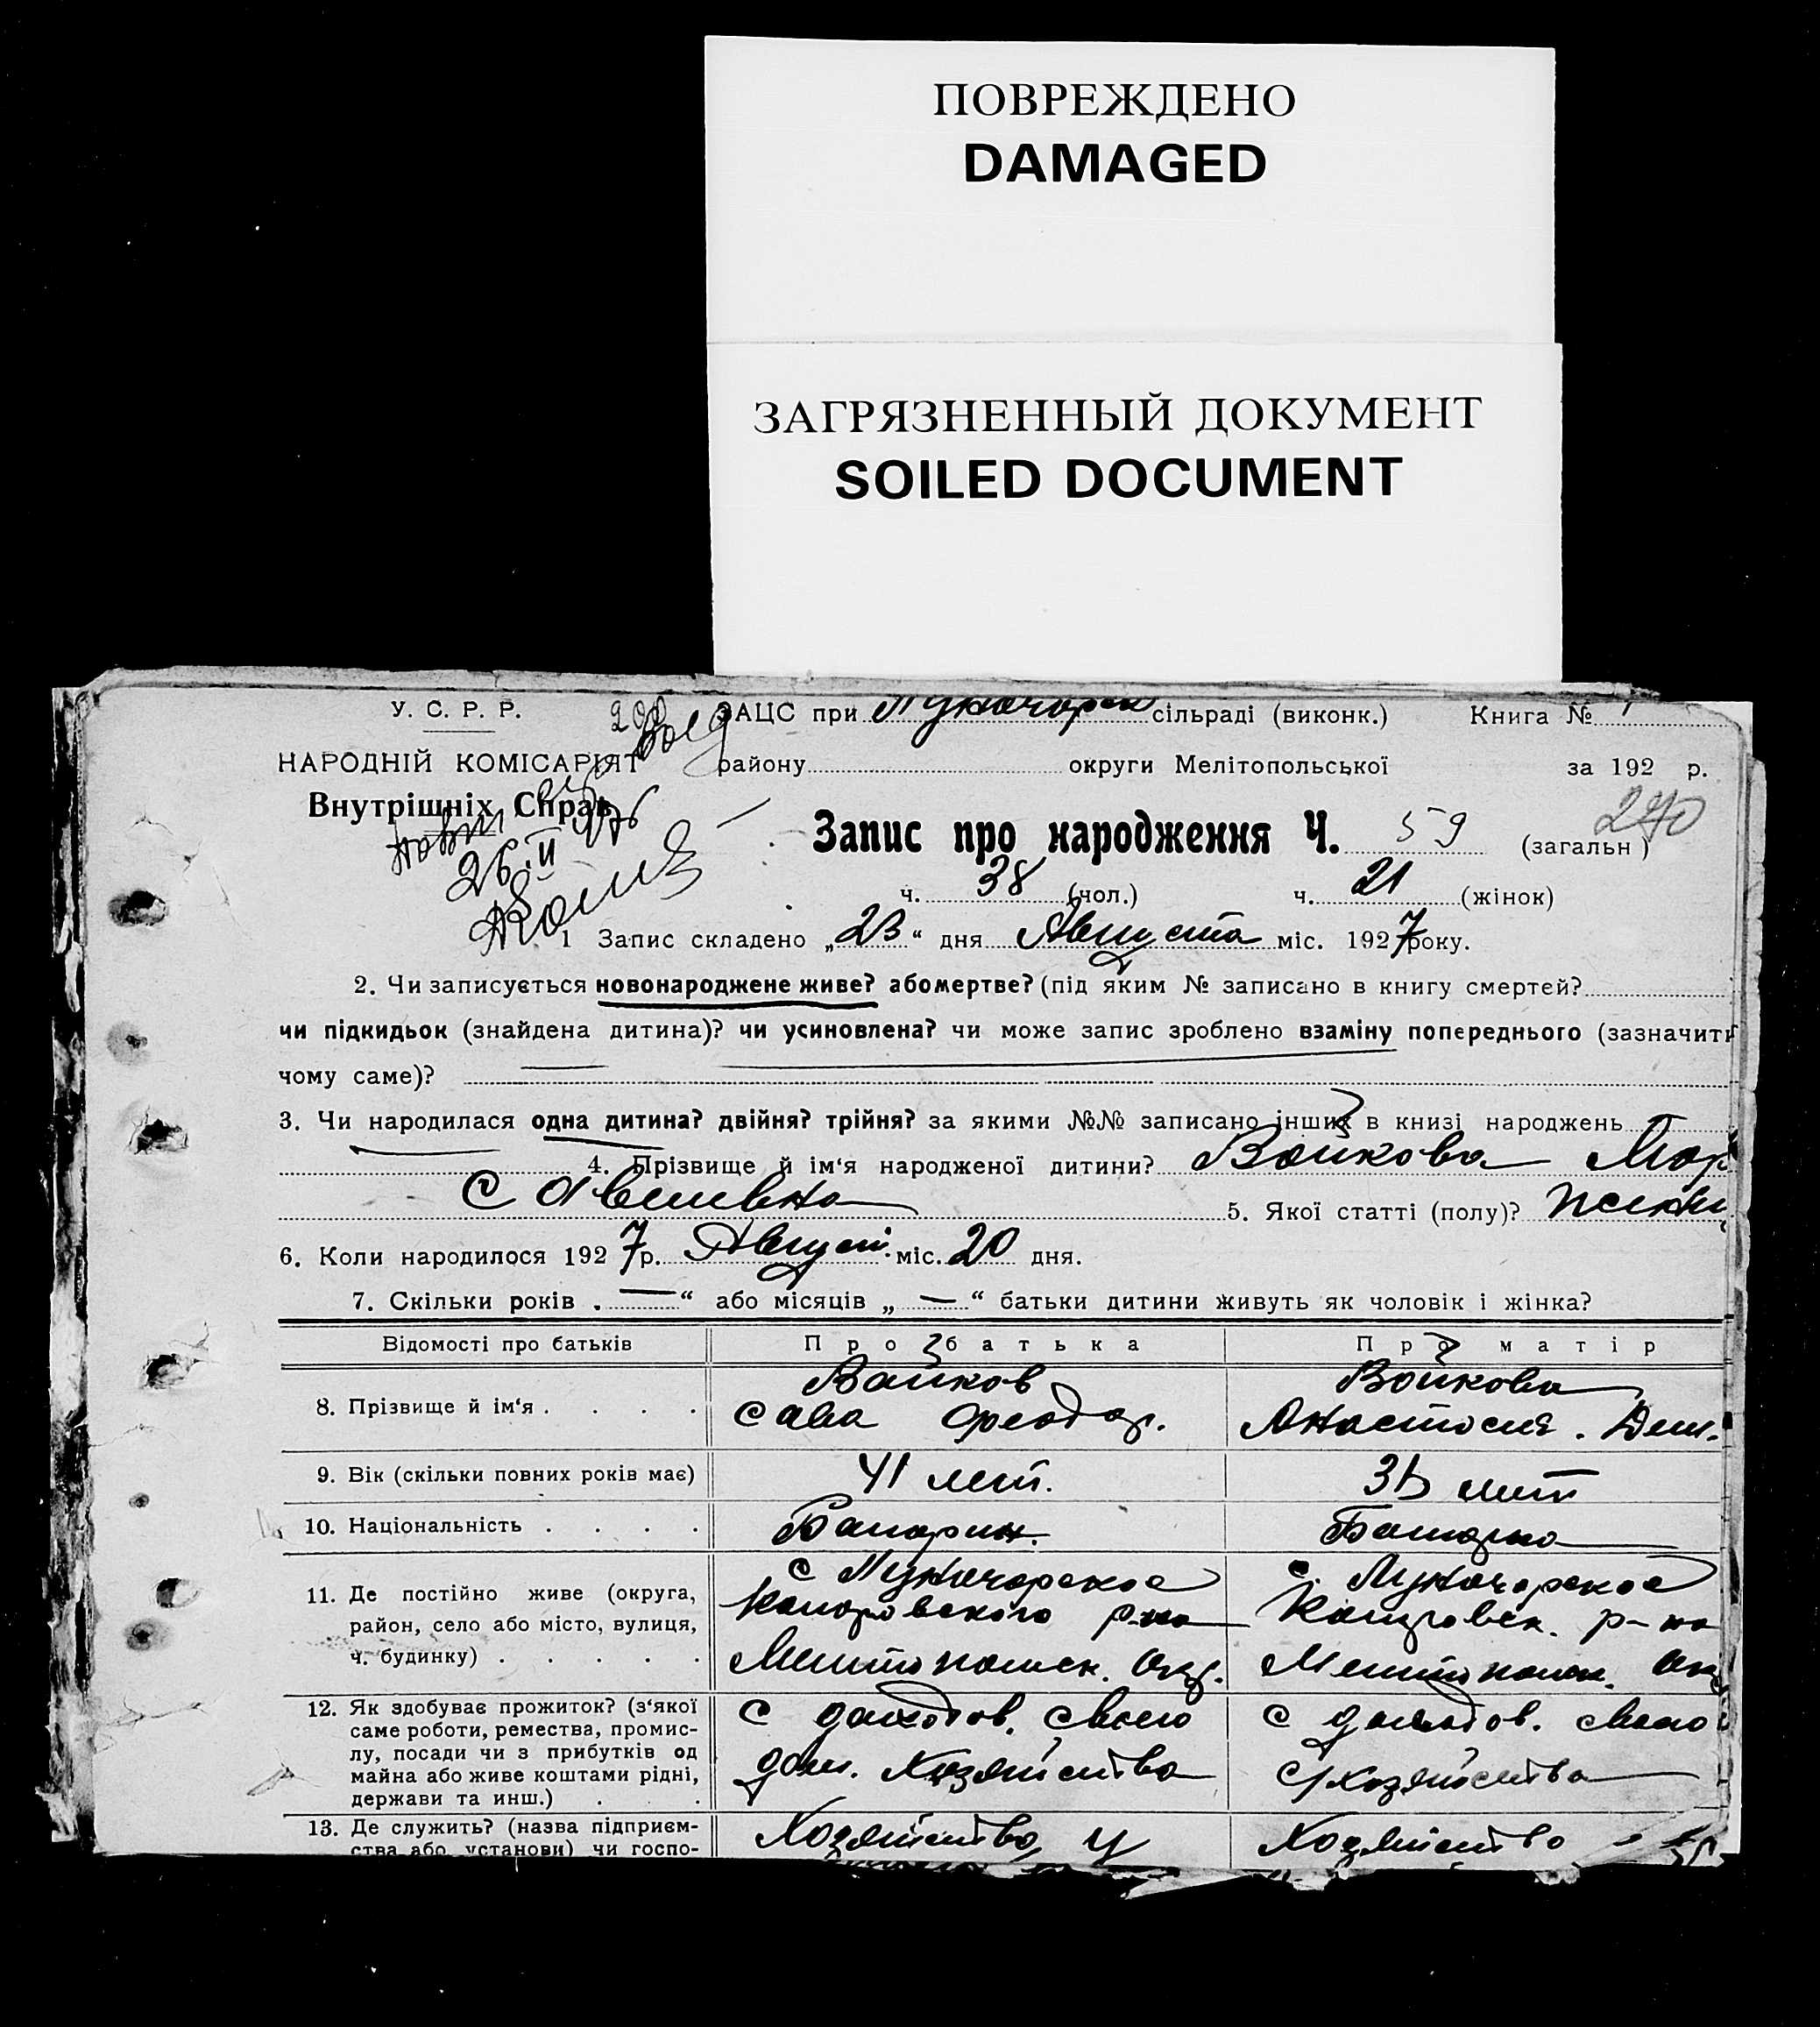 ПОВРЕЖДЕНО
DAMAGED
ЗАГРЯЗНЕННЫЙ ДОКУМЕНТ
SOILED DOCUMENT
У. С. Р. Р.
ЗАЦС при Луначарск сільраді (виконк.) Книга №
НАРОДНІЙ КОМІСАРІЯТ
району округи Мелітопольської за 192 р.
Внутрішніх Справ
26.II
Запис про народження Ч. 59 (загальн) 240
ч. 38 (чол.) ч. 21 (жінок)
1 Запис складено „23“ дня Августа міс. 1927 року.
2. Чи записується новонароджене живе? або мертве? (під яким № записано в книгу смертей?
чи підкидьок (знайдена дитина)? чи усиновлена? чи може запис зроблено взаміну попереднього (зазначить
чому саме)?
3. Чи народилася одна дитина? двійня? трійня? за якими №№ записано інших в книзі народжень
4. Прізвище й ім‘я народженої дитини? Войкова Мар
Савельевна 5. Якої статті (полу)? женщ
6. Коли народилося 1927 р. Август. міс. 20 дня.
7. Скільки років „ — “ або місяців „ — “ батьки дитини живуть як чоловік і жінка?
Відомості про батьків Про батька Про матір
8. Прізвище й ім‘я . . . . Войков Сава Феодор. Войкова Анастосия. Дем.
9. Вік (скільки повних років має) 41 лет. 33 лет
10. Національність . . . . Болгарин. Болгарка
11. Де постійно живе (округа,
район, село або місто, вулиця,
ч. будинку) . . . . .
с Луначарское
р-на
Мелитопольск. Окр.
с. Луначарское
р-на
Мелитопольск. Окр
12. Як здобуває прожиток? (з‘якої
саме роботи, ремества, промис-
лу, посади чи з прибутків од
майна або живе коштами рідні,
держави та инш.) . . .
С доходов. своего
дом. Хозяйства
С доходов. своего
с/хозяйства
13. Де служить? (назва підприєм-
ства або установи) чи госпо-
Хозяйство у
Хозяйство